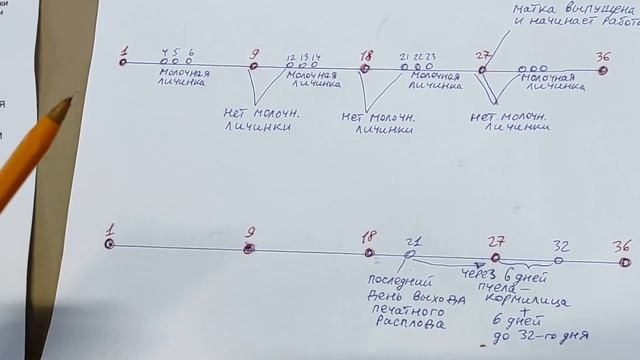 матка выпущена
и начинает работ
1 4 5 6 9 12 13 14 18 21 22 23 27 36
молочная личинка
молочная личинка
молочная личинка
молочная личинка
нет молочн. личинки
нет молочн. личинки
нет молочн. личинки
1 9 18 21 27 32 36
последний
день выхода
печатного
расплода
через 6 дней
пчела –
кормилица
+
6 дней
до 32-го дня